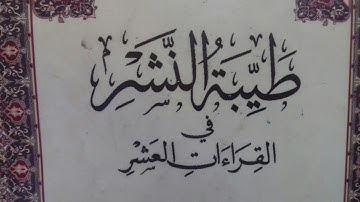 طَيِّبَةُ النَّشْرِ
فِي
القِرَاءَاتِ العَشْرِ